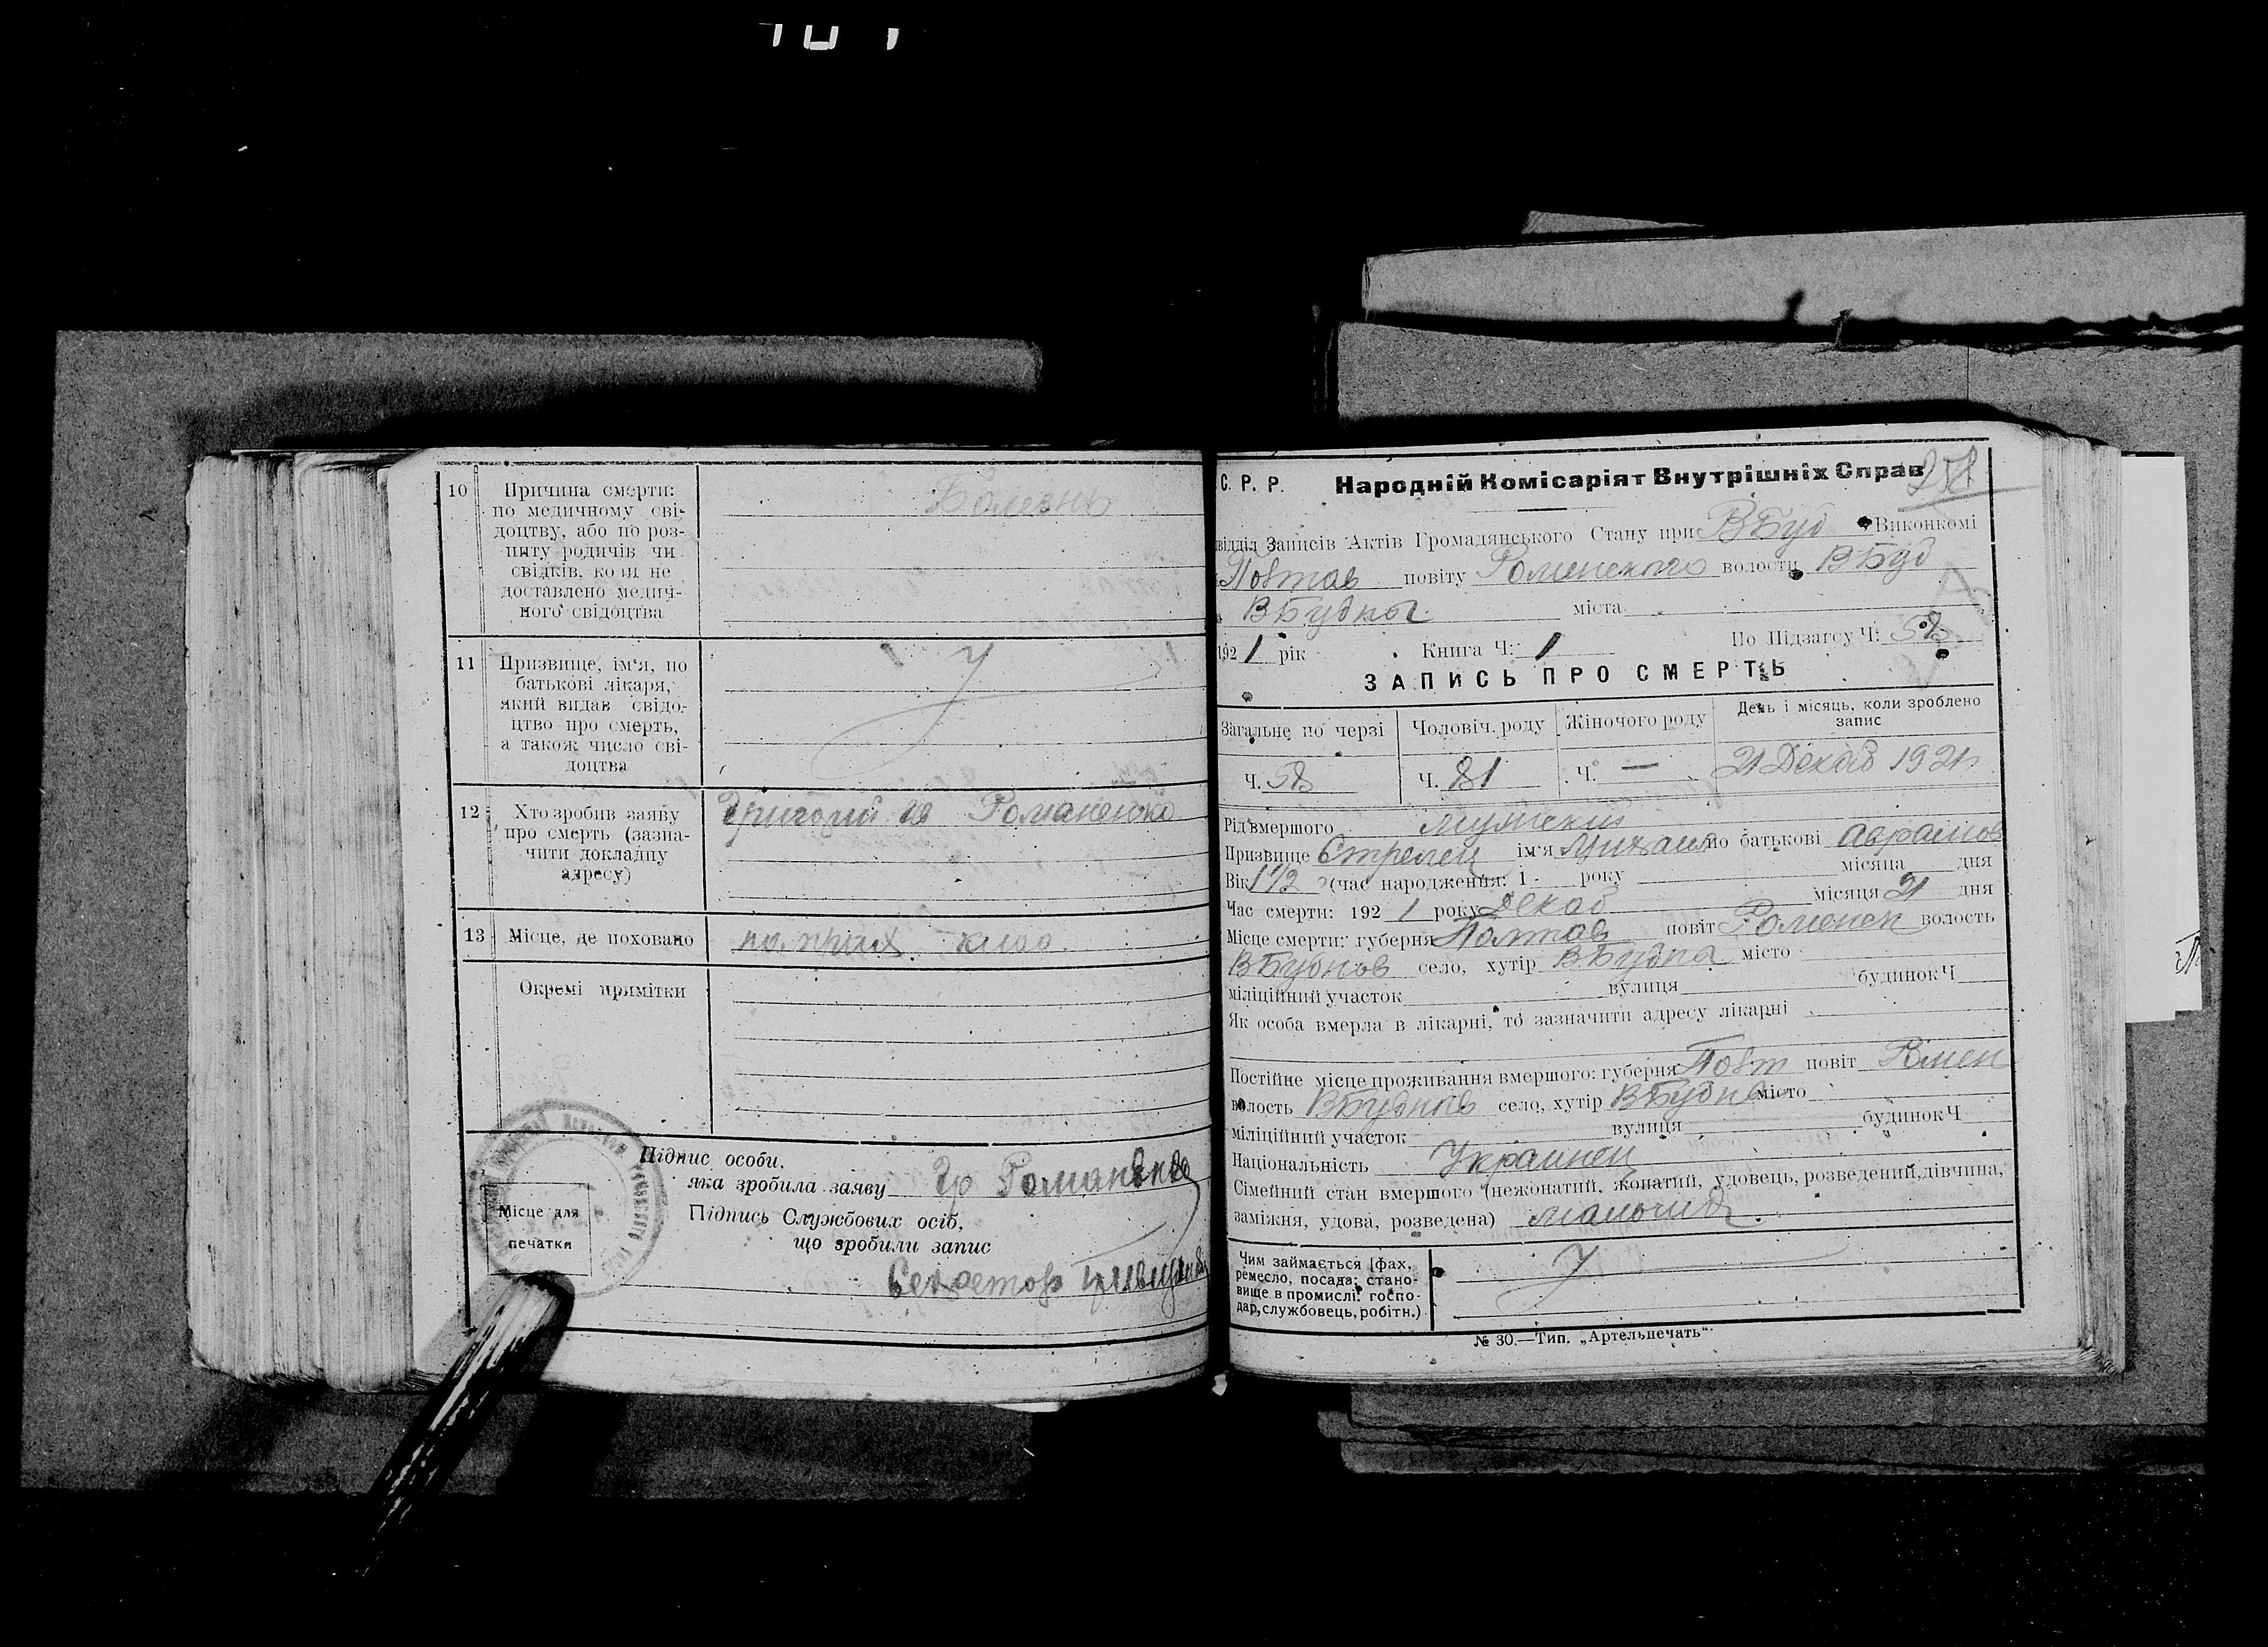 10 Причина смерти:
по медичному сві-
доцтву, або по роз-
питу родичів чи
свідків, коли не
доставлено медич-
ного свідоцтва
Болезнь
11 Призвище, ім'я, по
батькові лікаря,
який видав свідо-
цтво про смерть,
а також число сві-
доцтва
12 Хто зробив заяву
про смерть (зазна-
чити докладну
адресу)
Григорий Романенко
13 Місце, де поховано
по прих. клад.
Окремі примітки
Підпис особи,
яка зробила заяву Гр Романенко
Місце для
печатки
Підпись Службових осіб,
що зробили запис
Секретор
С. Р. Р. Народній Комісаріят Внутрішніх Справ 258
відділ Записів Актів Громадянського Стану при ВБуд Виконкомі
Полтав повіту Роменского волости ВБуд
ВБудка міста
1921 рік Книга Ч: 1 По Підзагсу Ч: 58
ЗАПИСЬ ПРО СМЕРТЬ
Загальне по черзі Чоловіч. роду Жіночого роду День і місяць, коли зроблено запис
Ч. 58 Ч. 81 Ч. — 21 Декаб 1921 г.
Рід вмершого мужский
Призвище Стрелец ім'я Михаил по батькові Аврамов
Вік 1 1/2 (час народження: 1 року місяца дня
Час смерти: 1921 року Декаб місяця 21 дня
Місце смерти: губерня Полтав повіт Роменск волость
ВБудков село, хутір ВБудка місто
міліційний участок вулиця будинок Ч
Як особа вмерла в лікарні, то зазначити адресу лікарні
Постійне місце проживання вмершого: губерня Полт повіт Ромен
волость ВБудков село, хутір ВБудка місто
міліційний участок вулиця будинок Ч
Національність Украинец
Сімейний стан вмершого (нежонатий, жонатий, удовець, розведений, дівчина,
заміжня, удова, розведена)
Чим займається [фах,
ремесло, посада; стано-
вище в промислі: госпо-
дар, службовець, робітн.)
№ 30.—Тип. „Артельпечать“